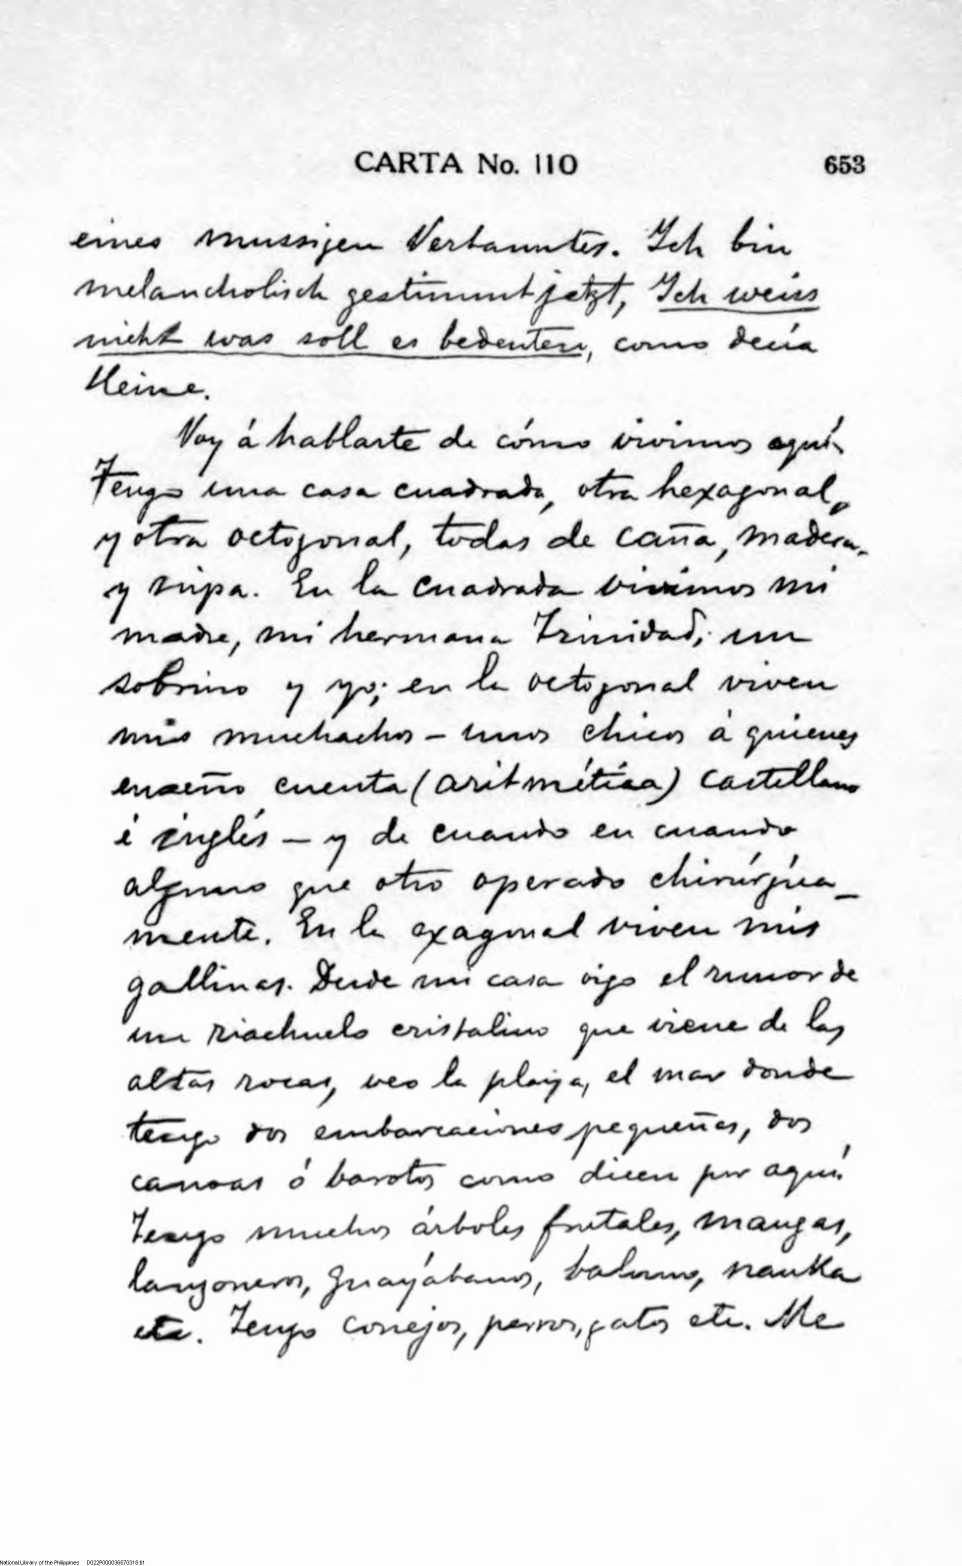 CARTA No. 110 653
eines mussigen Verbannten. Ich bin
melancholisch gestimmt jetzt, Ich weiss
nicht was soll es bedeuten, como decía
Heine.
Voy á hablarte de cómo vivimos aquí.
Tengo una casa cuadrada, otra hexagonal,
y otra octogonal, todas de caña, madera,
y nipa. En la cuadrada vivimos mi
madre, mi hermana Trinidad, un
sobrino y yo; en la octogonal viven
mis muchachos – unos chicos á quienes
enseño cuenta (aritmética) castellano
é inglés – y de cuando en cuando
alguno que otro operado chirúrgica_
mente. En la exagonal viven mis
gallinas. Desde mi casa oigo el rumor de
un riachuelo cristalino que viene de las
altas rocas, veo la playa, el mar donde
tengo dos embarcaciones pequeñas, dos
canoas ó barotos como dicen por aquí.
Tengo muchos árboles frutales, mangas,
lanzones, guayabanos, baluno, nanka
etc. Tengo conejos, perros, gatos etc. Me
National Library of the Philippines